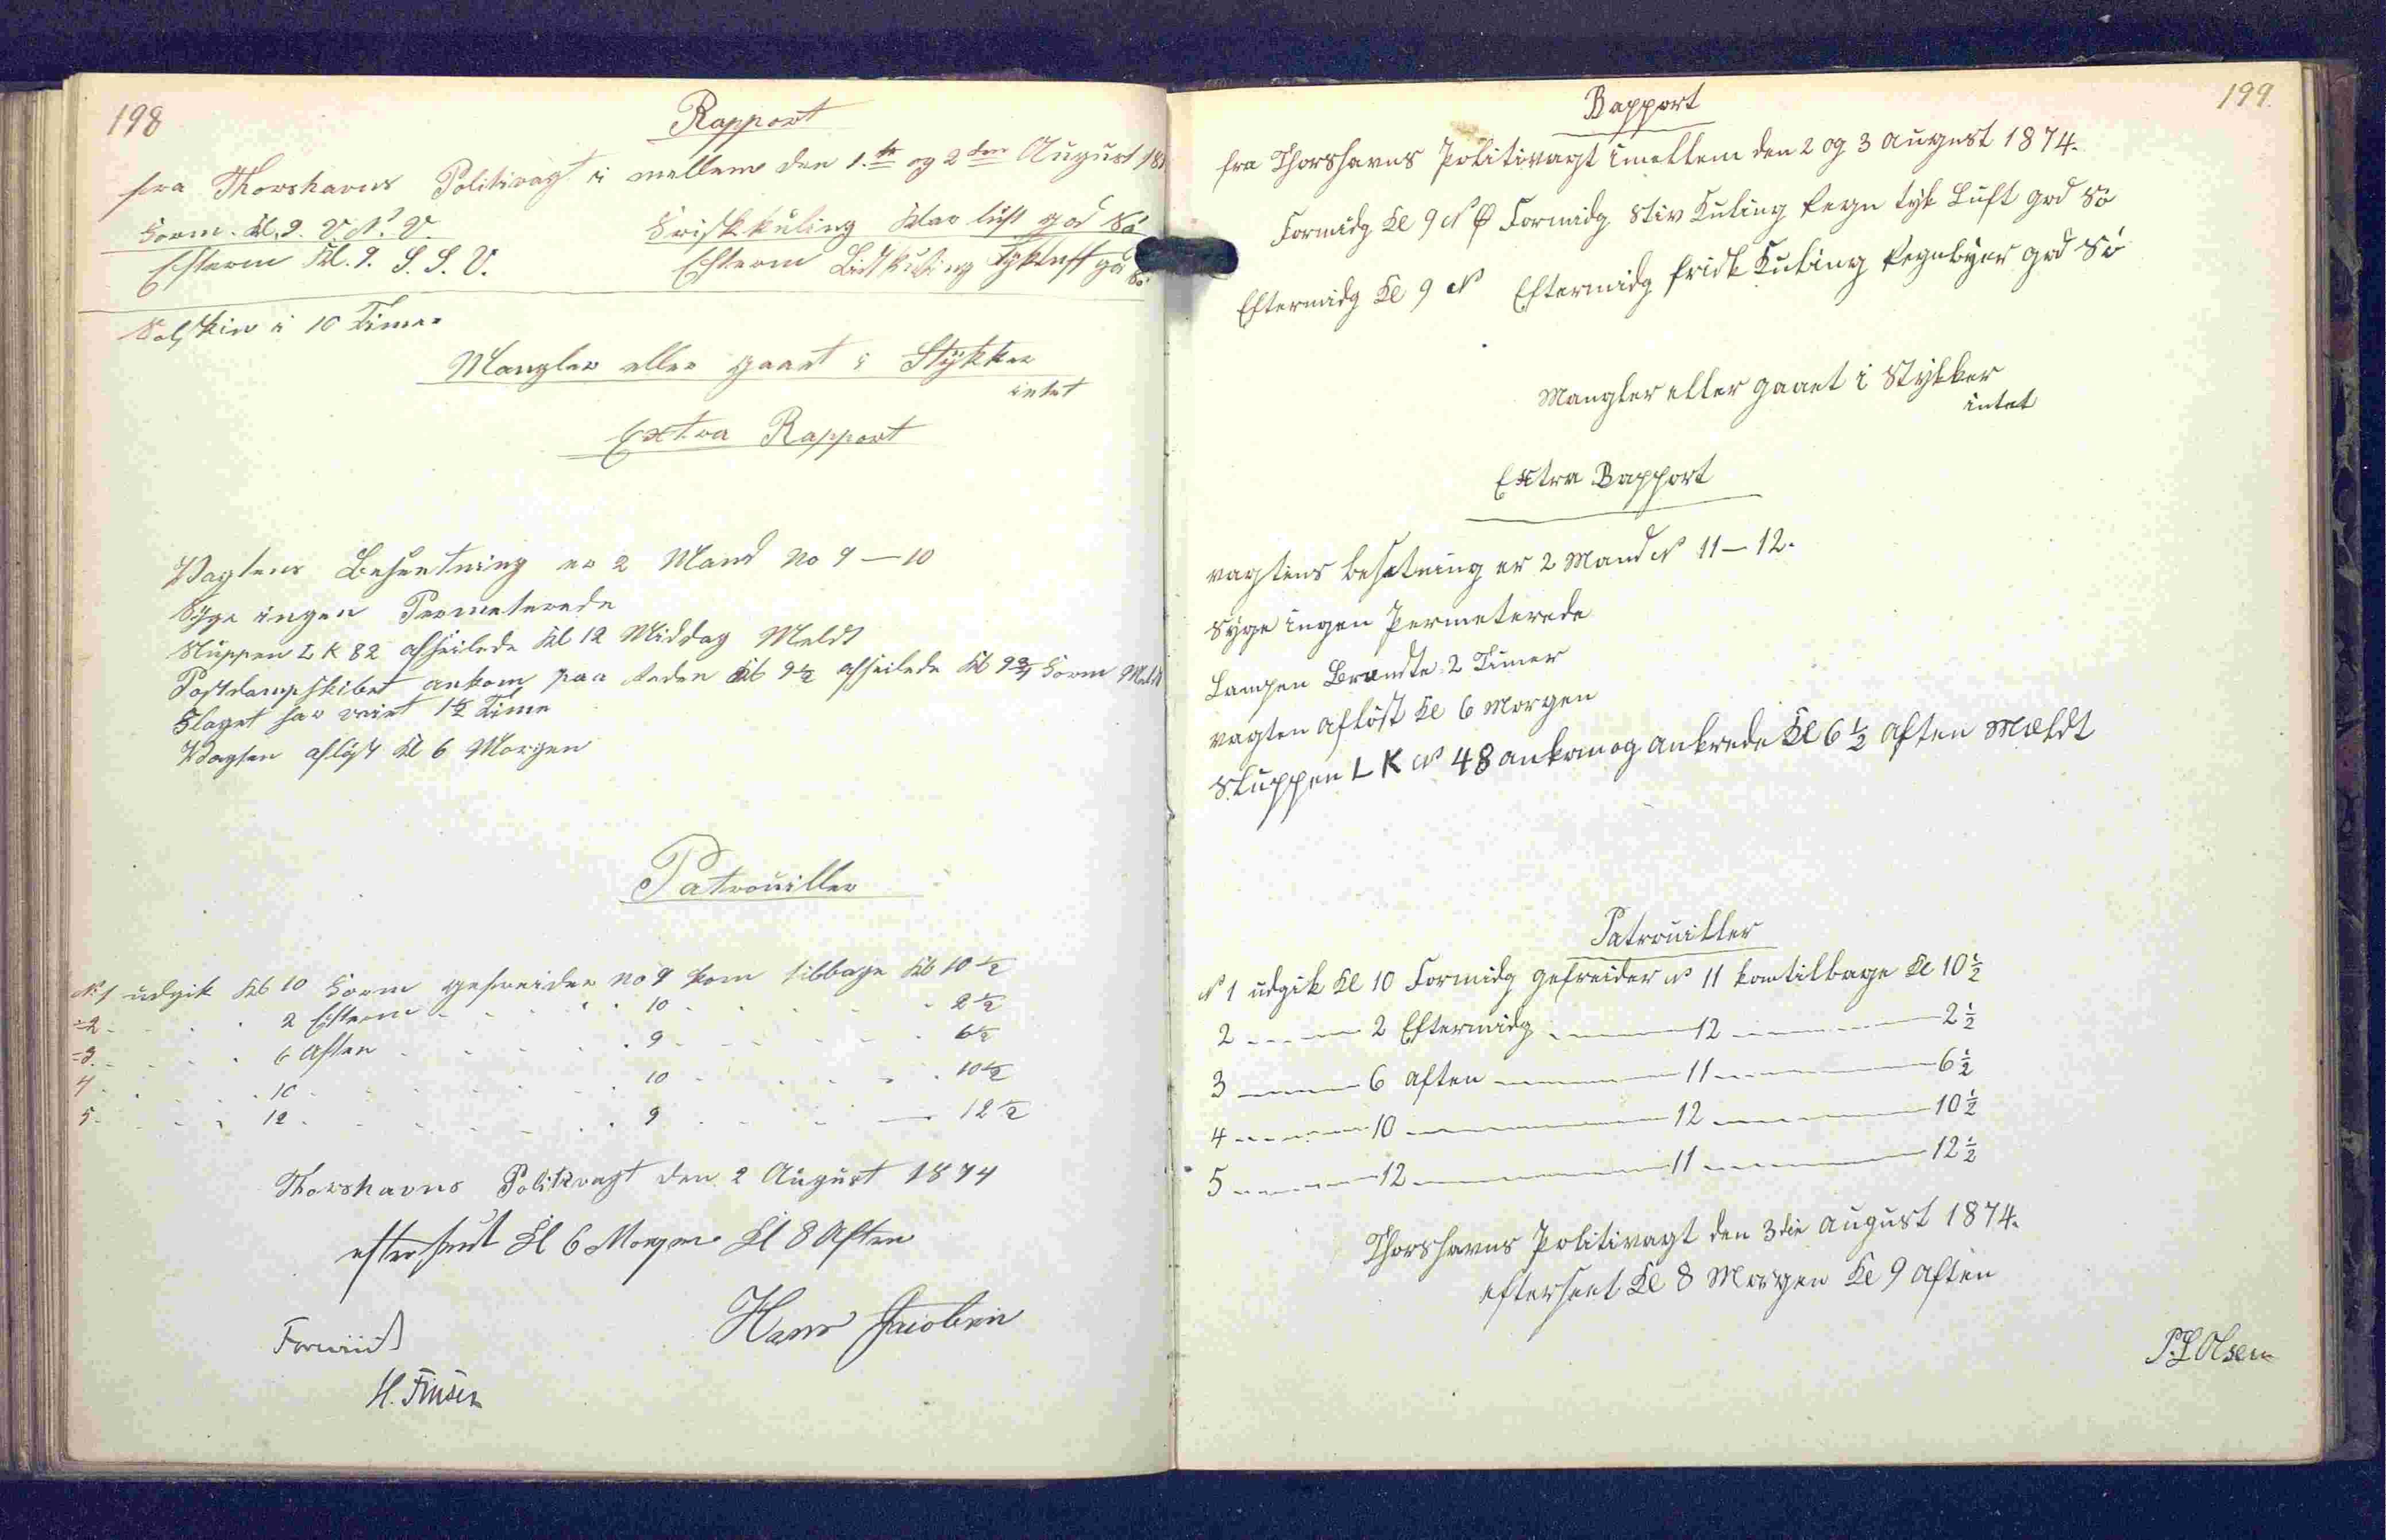 198
Rapport
fra Thorshavns Politivagt i mellem den 1.te og 2den August 187
Form. Kl. 9. V.N.V. Friskkuling klar luft god Sö
Efterm Kl. 9. S. S. V. Efterm Lidt kuling Tykluft god Sö.
Solskin i 10 Timer
Mangler eller gaaet i Stÿkker
intet
Extra Rapport
Vagtens Besætning er 2 Mand No 9 — 10
Syge ingen Permeterede
Sluppen L K 82 afseilede Kl 12 Middag Meldt
Postdampskibet ankom paa Reden Kl 9 1/2 afseilede Kl 9 3/4 Form Meldt
Flaget har veiet 1 1/2 Time
Vagten afløst Kl 6 Morgen
Patrouiller
No 1 udgik Kl 10 Form gefreider No 9 kom tilbage Kl 10 1/2
2 2 Efterm 10 2 1/2
3 6 Aften 9 6 1/2
4 10 10 10 1/2
5 12 9 12 1/2
Thorshavns Politivagt den 2 August 1874
efterseet Kl 6 Morgen Kl 8 Aften
Hans Jacobsen
H. Finsen
199.
Rapport
fra Thorshavns Politivagt imellem den 2 og 3 August 1874.
Formidg Kl 9 N Ø Formidg Stiv Kuling Regn tyk Luft god Sö
Eftermidg Kl 9 N Eftermidg frisk Kuling Regnbyer god Sö
Mangler eller gaaet i Stÿkker
intet
Extra Rapport
vagtens besetning er 2 Mand No 11 — 12.
Syge ingen Permeterede
Lampen Brændte 2 Timer
vagten aflöst Kl 6 Morgen
Sluppen L K No 48 ankom og ankrede Kl 6 1/2 Aften Mældt
Patrouiller
No 1 udgik Kl 10 Formidg gefreider No 11 kom tilbage Kl 10 1/2
2 — 2 Eftermidg — 12 — 2 1/2
3 — 6 Aften — 11 — 6 1/2
4 — 10 — 12 — 10 1/2
5 — 12 — 11 — 12 1/2
Thorshavns Politivagt den 3die August 1874.
efterseet Kl 8 Morgen Kl 9 Aften
Olsen